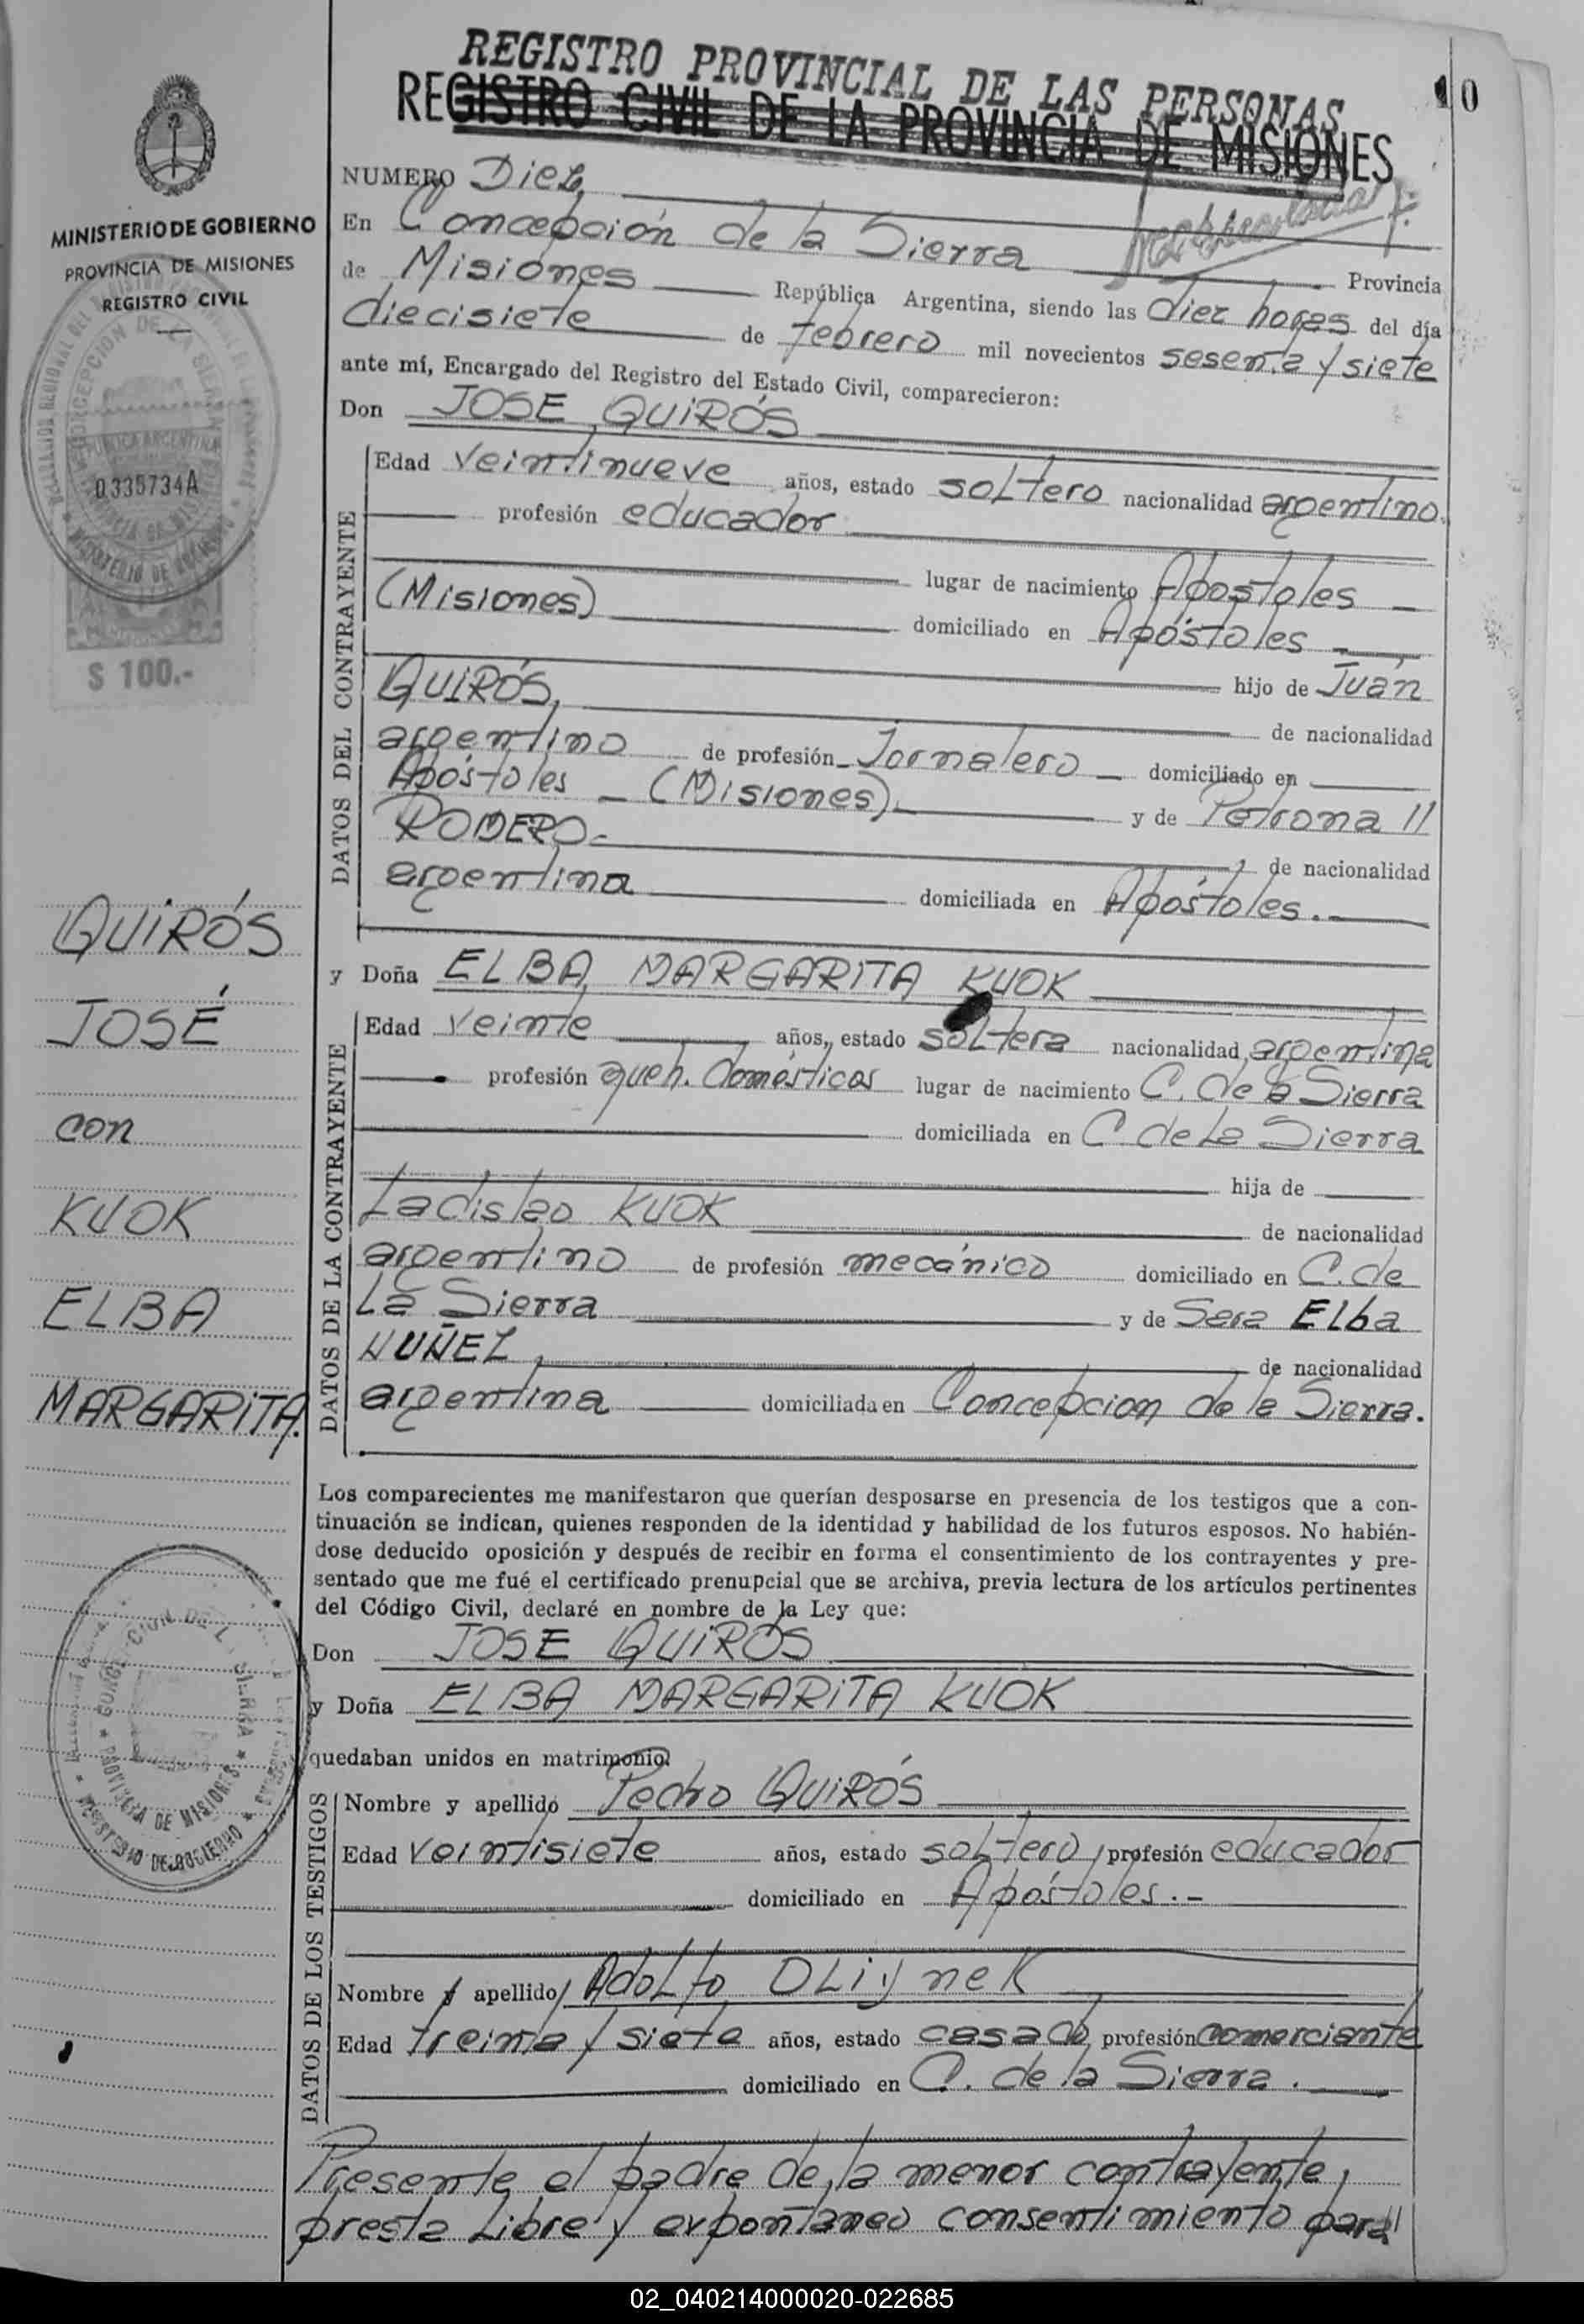 REGISTRO PROVINCIAL DE LAS PERSONAS
REGISTRO CIVIL DE LA PROVINCIA DE MISIONES
10
MINISTERIO DE GOBIERNO
PROVINCIA DE MISIONES
REGISTRO CIVIL
0335734A
$ 100.-
QUIRÓS
JOSÉ
con
KUOK
ELBA
MARGARITA.
NUMERO Diez
En Concepción de la Sierra Provincia
de Misiones República Argentina, siendo las diez horas del día
diecisiete de febrero mil novecientos sesenta y siete
ante mí, Encargado del Registro del Estado Civil, comparecieron:
Don JOSE QUIRÓS
DATOS DEL CONTRAYENTE
Edad veintinueve años, estado soltero nacionalidad argentino.
profesión educador
lugar de nacimiento Apóstoles
(Misiones) domiciliado en Apóstoles
hijo de Juán
QUIRÓS, de nacionalidad
argentino de profesión Jornalero domiciliado en
Apóstoles (Misiones). y de Petrona
ROMERO de nacionalidad
argentina domiciliada en Apóstoles.
y Doña ELBA MARGARITA KUOK
DATOS DE LA CONTRAYENTE
Edad veinte años, estado soltera nacionalidad argentina
profesión queh. domésticos lugar de nacimiento C. de la Sierra
domiciliada en C de La Sierra
hija de
Ladislao KUOK de nacionalidad
argentino de profesión mecánico domiciliado en C. de
La Sierra y de Sara Elba
NUÑEZ, de nacionalidad
argentina domiciliada en Concepcion de la Sierra.
Los comparecientes me manifestaron que querían desposarse en presencia de los testigos que a con-
tinuación se indican, quienes responden de la identidad y habilidad de los futuros esposos. No habién-
dose deducido oposición y después de recibir en forma el consentimiento de los contrayentes y pre-
sentado que me fué el certificado prenupcial que se archiva, previa lectura de los artículos pertinentes
del Código Civil, declaré en nombre de la Ley que:
Don JOSE QUIRÓS
y Doña ELBA MARGARITA KUOK
quedaban unidos en matrimonio.
DATOS DE LOS TESTIGOS
Nombre y apellido Pedro QUIRÓS
Edad veintisiete años, estado soltero, profesión educador
domiciliado en Apóstoles.-
Nombre y apellido Adolfo OLiynek
Edad treinta y siete años, estado casado, profesión comerciante
domiciliado en C. de la Sierra.
Presente el padre de la menor contrayente,
presta Libre y expontáneo consentimiento para
02_040214000020-022685